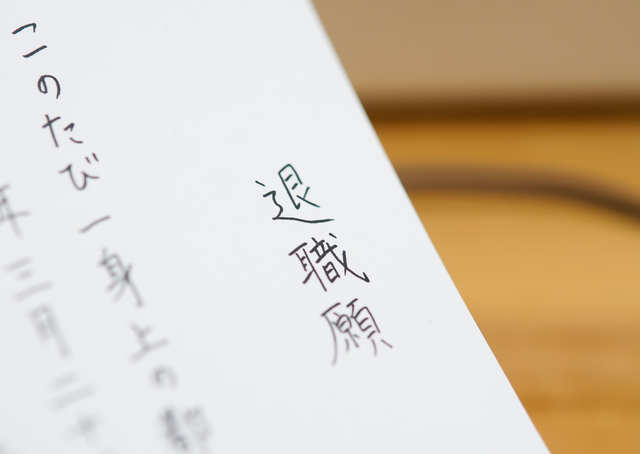 退職願
このたび一身上の都
年三月二十